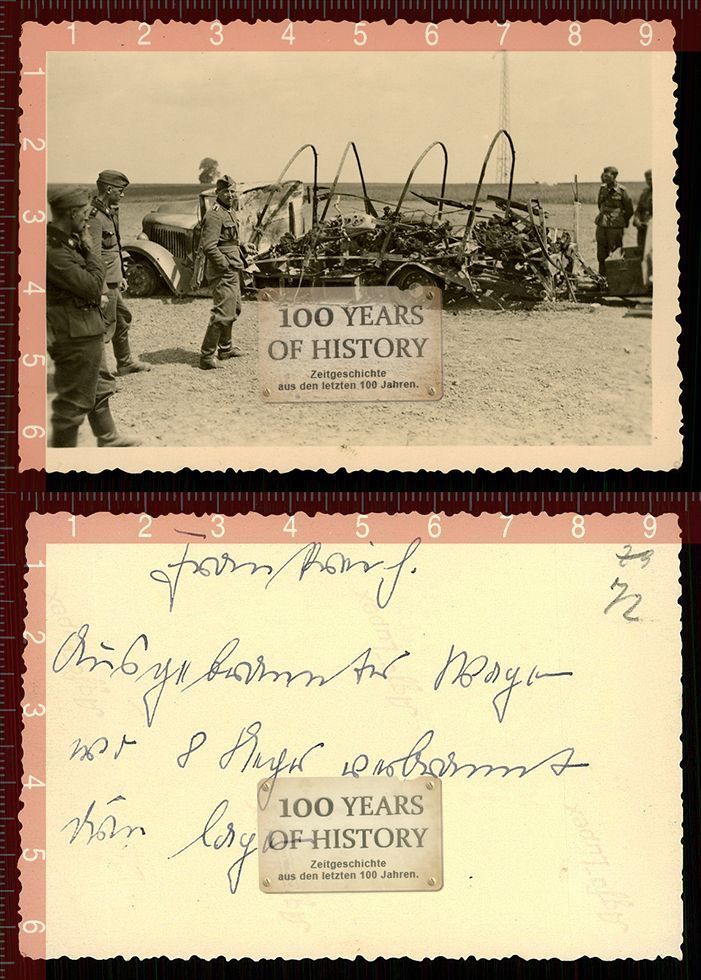 1 2 3 4 5 6 7 8 9
1
2
3
4
5
6
100 YEARS
OF HISTORY
Zeitgeschichte
aus den letzten 100 Jahren.
1 2 3 4 5 6 7 8 9
1
2
3
4
5
6
Frankreich.
72
Ausgebrannter Wagen
wo 8 Neger verbrannt
drin lagen
Agfa-Lupex
Agfa-Lupex
Agfa-Lupex
100 YEARS
OF HISTORY
Zeitgeschichte
aus den letzten 100 Jahren.